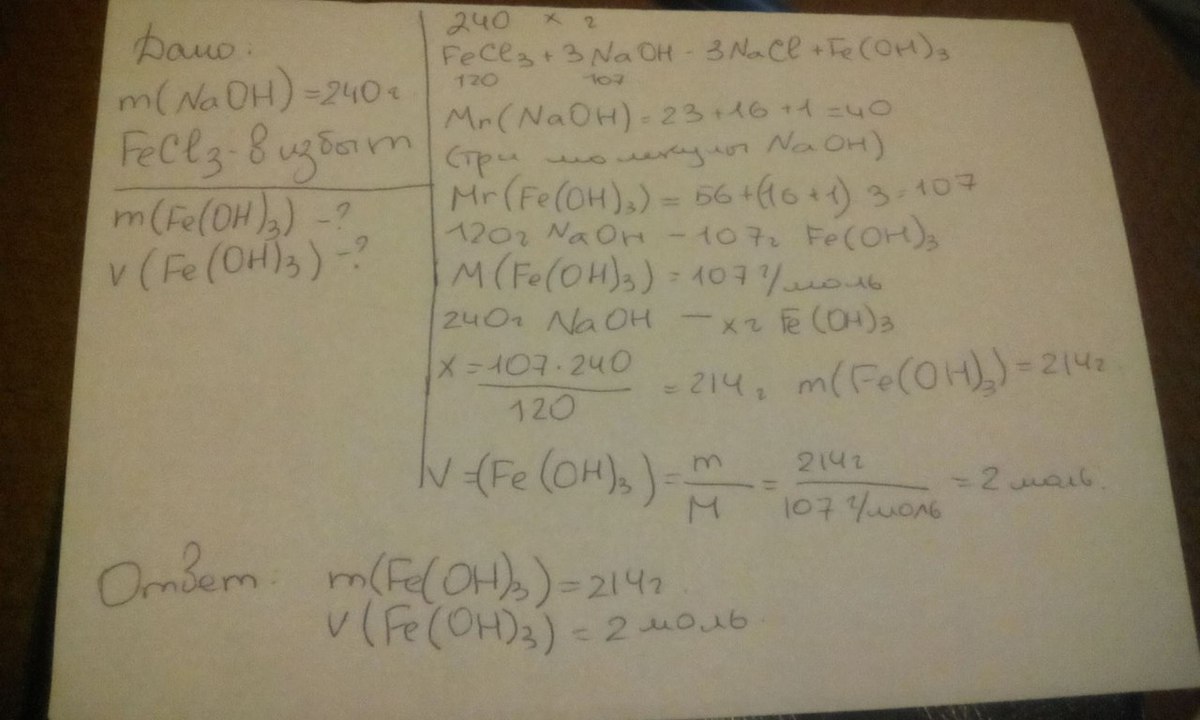 Дано:
m(NaOH)=240г
FeCl3-в избыт
m(Fe(OH)3) -?
ν(Fe(OH)3) -?
240 x г
FeCl3+3NaOH - 3NaCl+Fe(OH)3
120 107
Mr(NaOH)=23+16+1=40
(три молекулы NaOH)
Mr(Fe(OH)3)=56+(16+1) 3=107
120г NaOH - 107г Fe(OH)3
M(Fe(OH)3)=107 г/моль
240г NaOH - xг Fe(OH)3
x=107·240/120 =214г m(Fe(OH)3)=214г
ν=(Fe(OH)3)=m/M=214г/107 г/моль=2 моль.
Ответ: m(Fe(OH)3)=214г
ν(Fe(OH)3)=2 моль